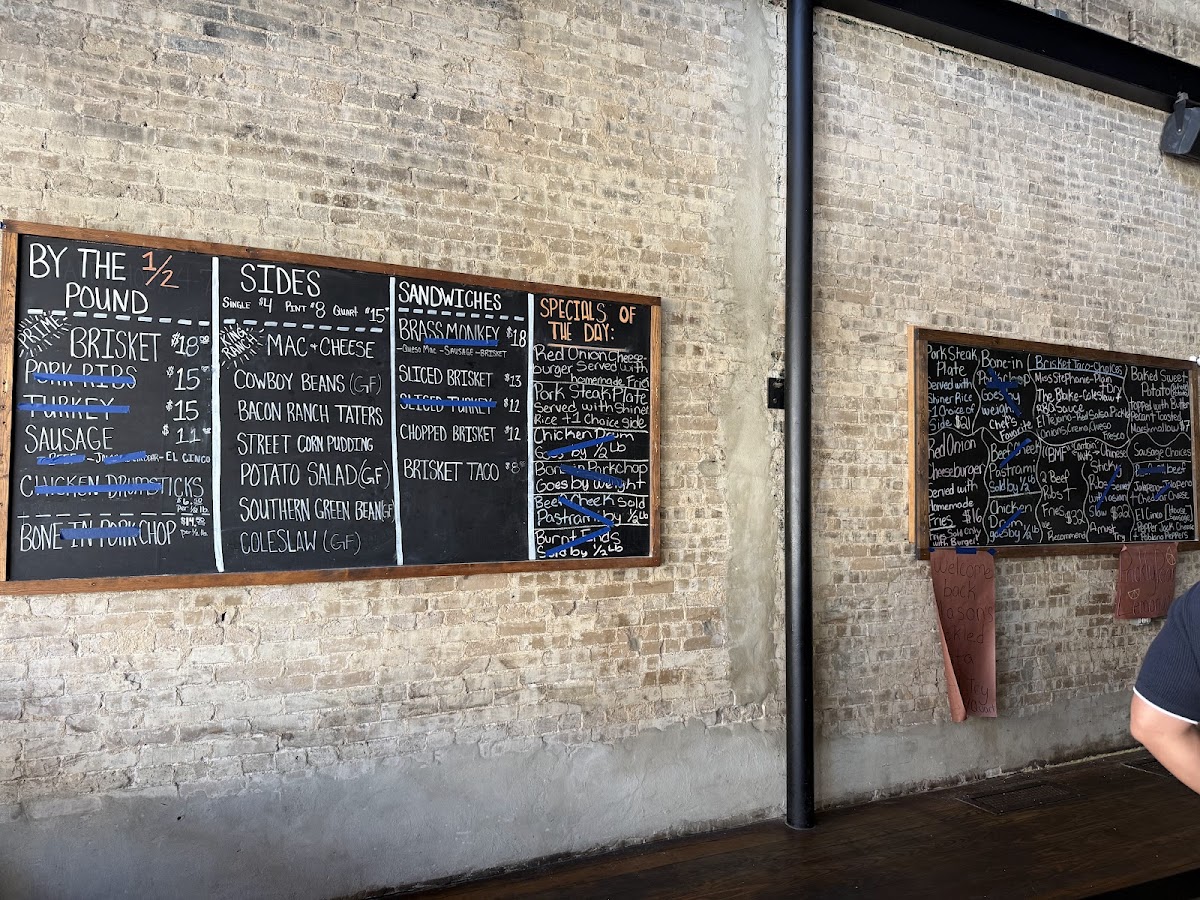 BY THE 1/2
POUND
PRIME
BRISKET $18
PORK RIBS $15
TURKEY $15
SAUSAGE $11
BEEF - JALAPEÑO CHEDDAR - EL CINCO
CHICKEN DRUMSTICKS
per 1/2 lb.
BONE-IN PORKCHOP
per 1/2 lb.
SIDES
SINGLE $4 PINT $8 QUART $15
KING RANCH
MAC + CHEESE
COWBOY BEANS (GF)
BACON RANCH TATERS
STREET CORN PUDDING
POTATO SALAD (GF)
SOUTHERN GREEN BEAN (GF
COLESLAW (GF)
SANDWICHES
BRASS MONKEY $18
- QUESO MAC - SAUSAGE - BRISKET
SLICED BRISKET $13
SLICED TURKEY $12
CHOPPED BRISKET $12
BRISKET TACO $8
SPECIALS OF
THE DAY:
Red Onion Cheese-
burger Served with
homemade Fries
Pork Steak Plate
Served with Shiner
Rice + 1 Choice side
Chicken
Goes by 1/2 lb
Bone-in Porkchop
Goes by weight
Beef Cheek Sold
Pastrami by 1/2 lb
Burnt Ends
Sold by 1/2 Lb
Pork Steak
Plate
Served with
Shiner Rice
1 Choice of
Side $21
Red Onion
Cheeseburger
Served with
Homemade
Fries $16
with Burger!
Bone-in
Porkchop
Goes by
weight
Chef's
Favorite
Beef Cheek
Pastrami
Sold by 1/2
Chicken
Goes by 1/2
Brisket Taco Choices
Miss Stephanie - Plain
+ Dry
The Blake - Coleslaw +
BBQ Sauce
2 Beef
Ribs +
Fries $32
Recommend
Chinese
Sticky
Ribs
Slaw $22
A must
Try
Baked Sweet
Potato
Topped with Butter
Pecan + Toasted
Marshmallow $7
Sausage Choices
beef
Jalapeño
Cheddar Cheese
El Cinco
House
Sausage
Pepper Jack Cheese
+ Poblano Peppers
Welcome
back